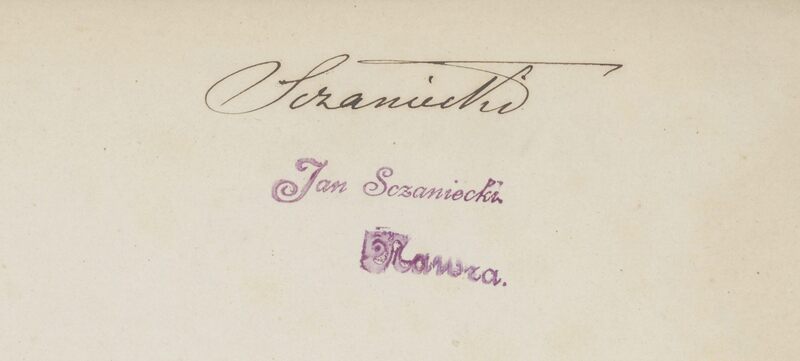 Sczaniecki
Jan Sczaniecki.
Nawra.